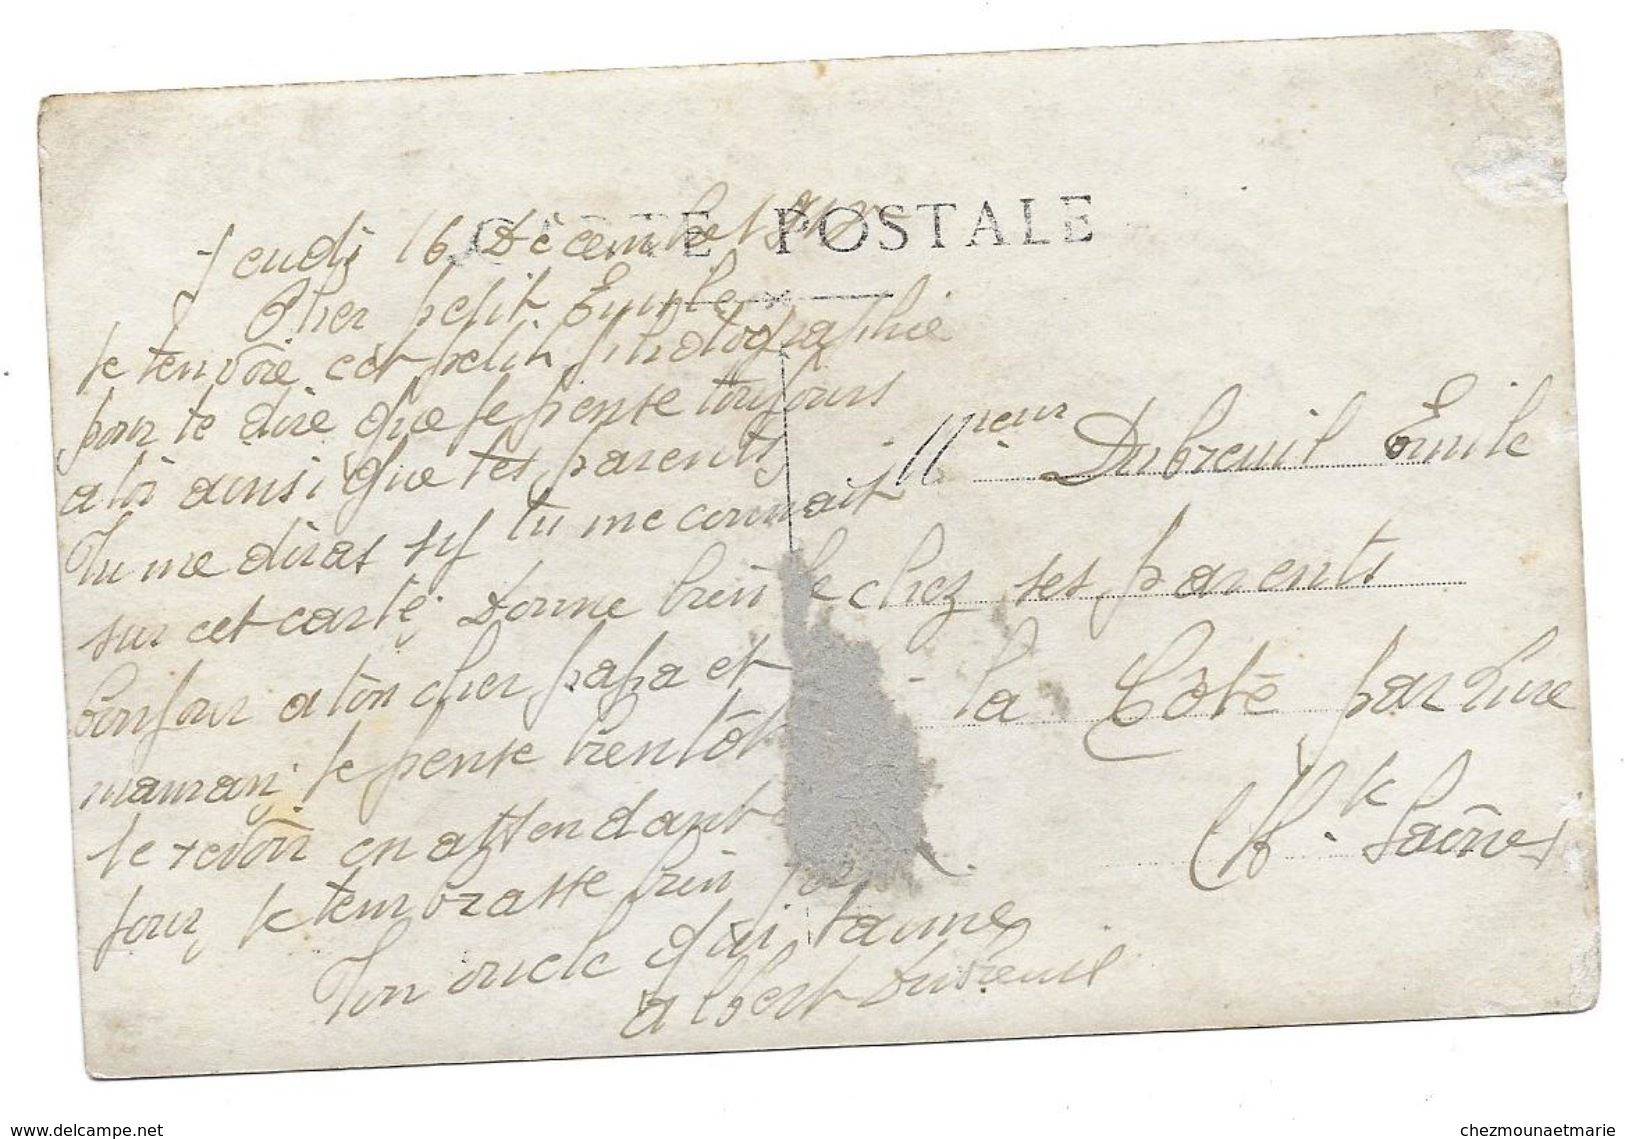 CARTE POSTALE
Jeudi 16 Décembre 1915
Cher petit Emile
Je tenvoie cèt petit photographie
pour te dire que je pense toujours
a toi ainsi que tes parents
Tu me diras sif tu me connait
sur cet carte. Donne bien le
bonjour a ton cher papa et
maman, Je pense bientôt
te revoir en attendant
jour, Je tembrasse bien
Ton oncle qui taime
albert Dubreuil
Mieur Dubreuil Emile
chez ses parents
la Côte par Lure
Hte Saône
www.delcampe.net
chezmounaetmarie